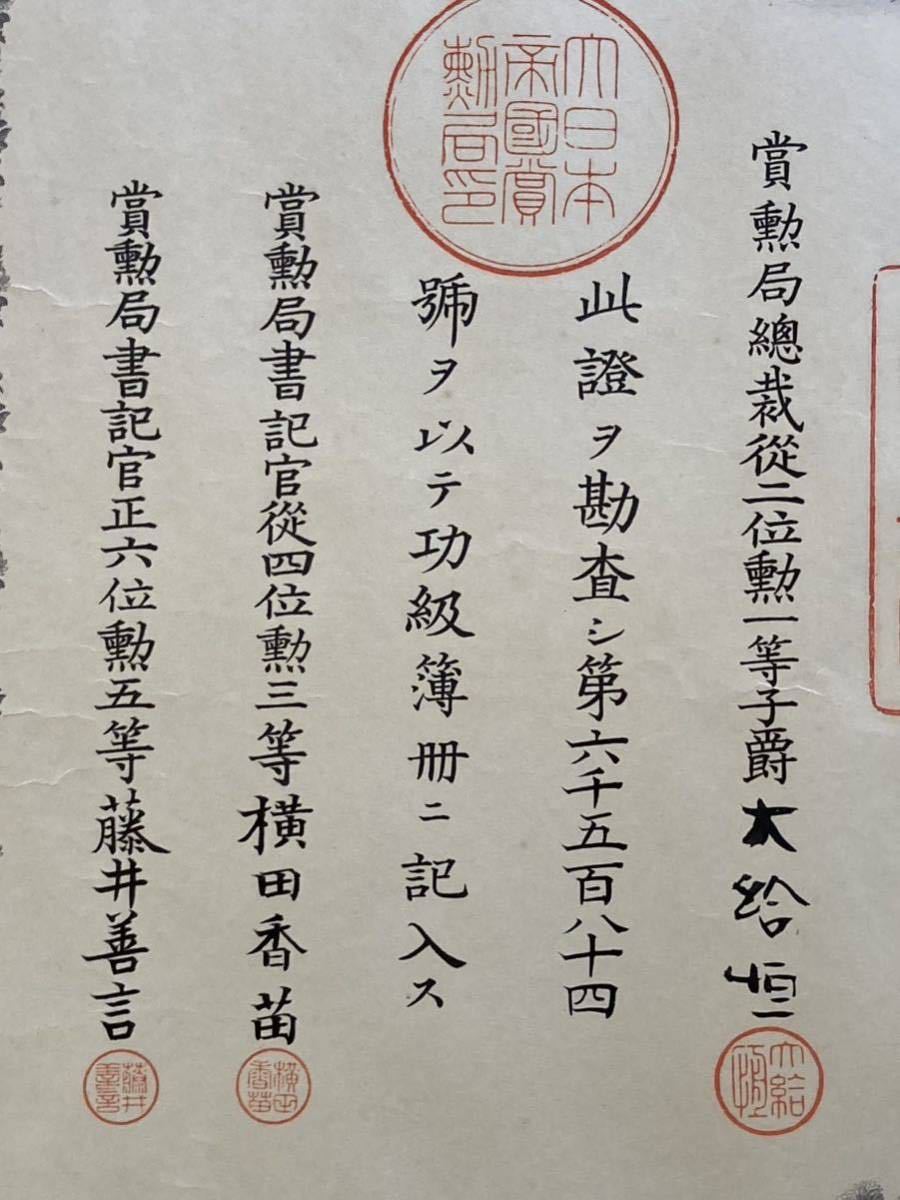 賞勲局總裁從二位勲一等子爵大給恒
大給恒
大日本
帝國賞
勲局印
此證ヲ勘査シ第六千五百八十四
號ヲ以テ功級簿冊ニ記入ス
賞勲局書記官從四位勲三等横田香苗
横田香苗
賞勲局書記官正六位勲五等藤井善言
藤井善言